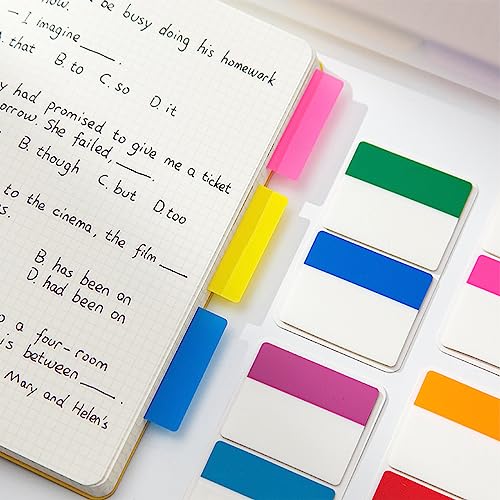 now.
be busy doing his homework
— I imagine ____.
A. that B. to C. so D. it
y had promised to give me a ticket
orrow. She failed, ____.
B. though C. but D. too
to the cinema, the film ____
s.
B. has been on
D. had been on
o a four-room
's between ____.
Mary and Helen's